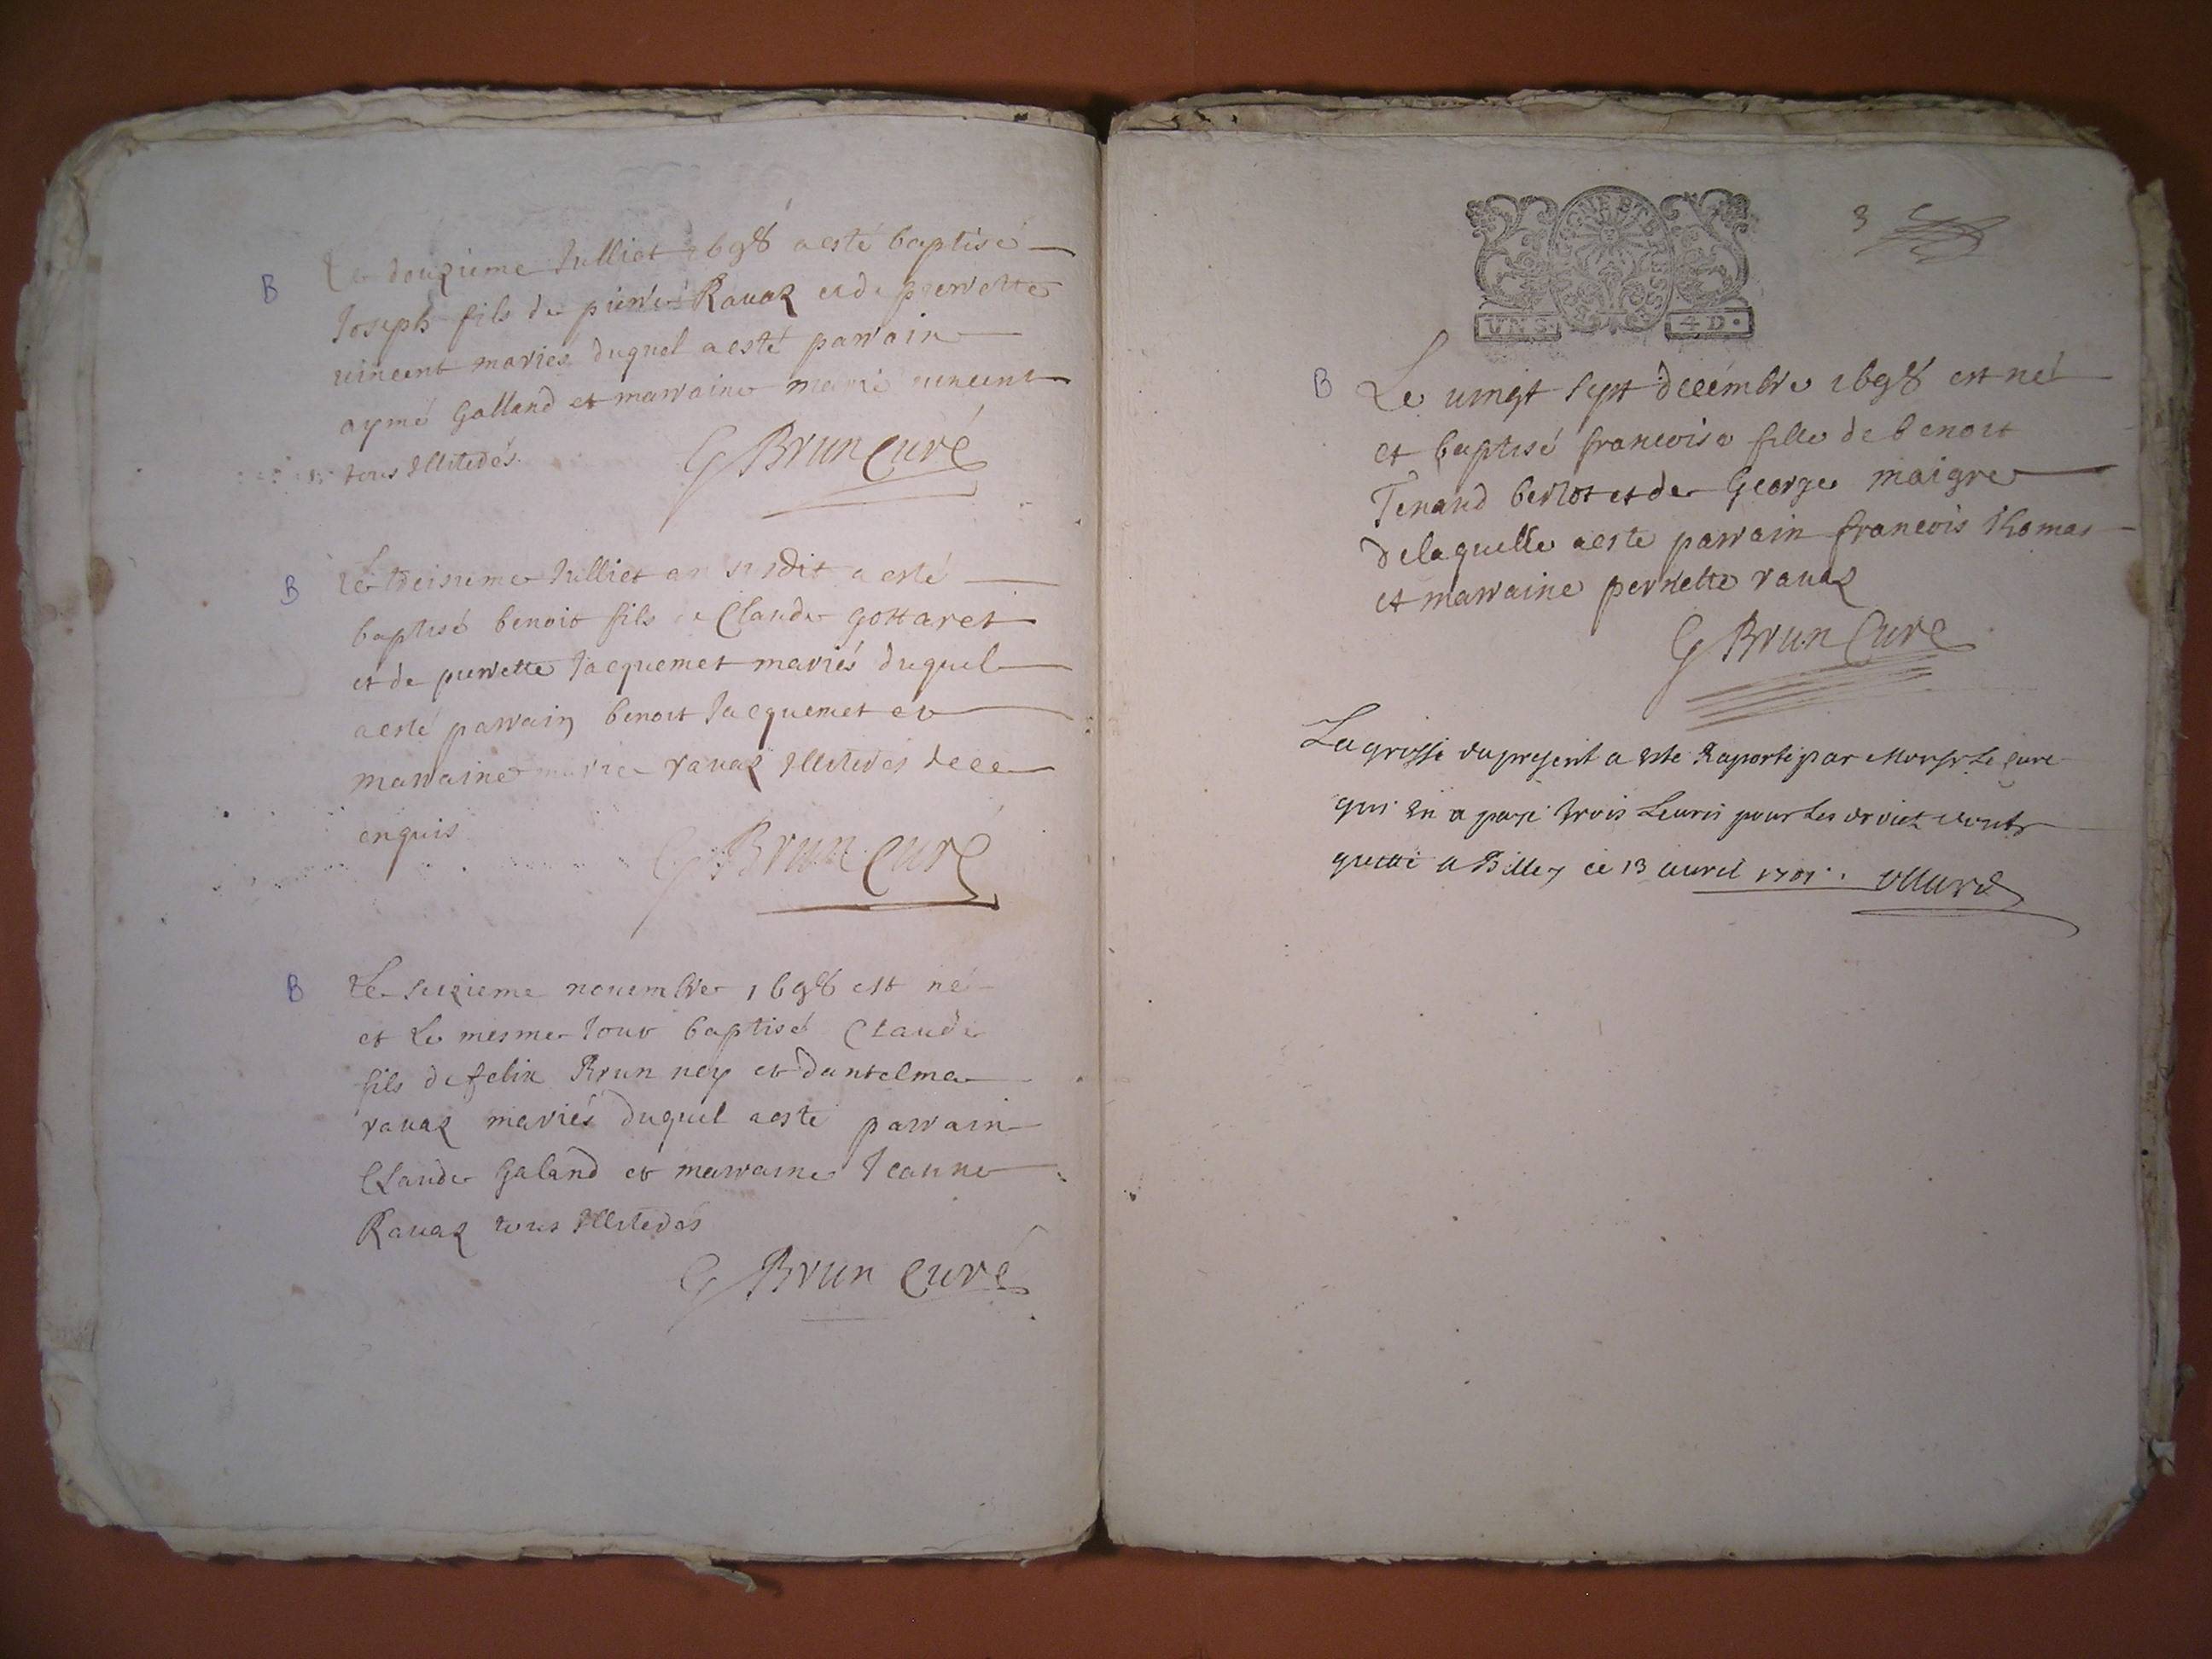 B
Le douzieme Julliet 1698 a esté baptisé
Joseph fils de pierre Rauaz et de pierrette
uincent mariés duquel a esté parrain
aymé Galland et marraine marie uincent
tous Illiterés.
G Brun Curé
B
Le treisieme Julliet an susdit a esté
baptisé benoit fils de Claude gottaret
et de pierrette Jacquemet mariés duquel
a esté parrain benoit Jacquemet et
marraine marie rauaz Illiterés de ce
enquis
G Brun Curé
B
Le seizieme nouembre 1698 est né
et le mesme Jour baptisé Claude
fils de felix Brun ney et dantelma
rauaz mariés duquel a esté parrain
Claude Galand et marraine Jeanne
Rauaz tous Illiterés
G Brun Curé
3
GENERAL
VN S. 4 D.
B
Le uingt sept decembre 1698 est né
et baptisé francoise fille de benoit
Tenand berlot et de George maigre
de laquelle a este parrain francois thomas
et marraine pernette rauaz
G Brun Curé
La grosse du present a este Raporté par Monsr Le Cure
qui En a payé trois Liures pour Les droict dont
quitté A Belley ce 13 auril 1701.